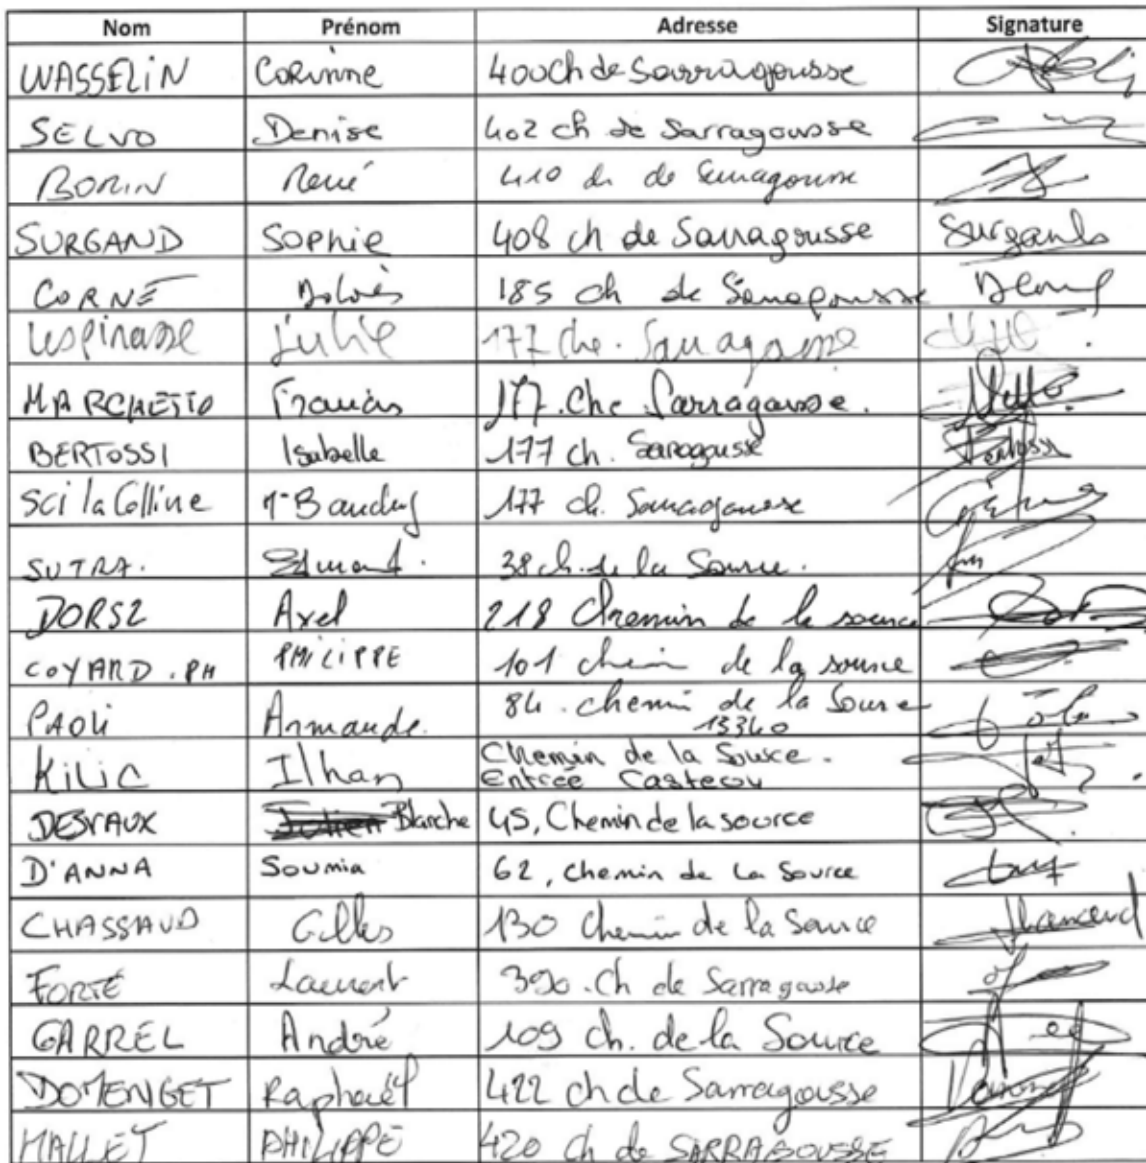 Nom Prénom Adresse Signature
WASSELIN Corinne 400 Ch de Sarragousse
SELVO Denise 402 ch de Sarragousse
BORIN René 410 ch de Sarragousse
SURGAND Sophie 408 ch de Sarragousse Surgand
CORNÉ 185 ch de Sarragousse
Lespinasse Julie 177 che. Sarragousse
MARCHETTO Francis 177. Che Sarragousse.
BERTOSSI Isabelle 177 ch. Saragousse Bertossi
Sci la Colline 177 ch. Sarragousse
SUTRA. Edmond. 38 ch. de la Source.
DORSZ Axel 218 Chemin de la source
COYARD . PH PHILIPPE 101 chemin de la source
PAOLI Armande. 84. chemin de la Source
13340
KILIC Ilhan Chemin de la Source.
Entrée Castecou
DESVAUX Blanche 45, Chemin de la source
D'ANNA Soumia 62, chemin de La Source
CHASSAUD Gilles 130 Chemin de la Source
FORTÉ Laurent 390. Ch de Sarragousse
GARREL André 109 ch. de la Source
DOMENGET Raphaël 422 ch de Sarragousse
MALLET PHILIPPE 420 ch de SARRAGOUSSE